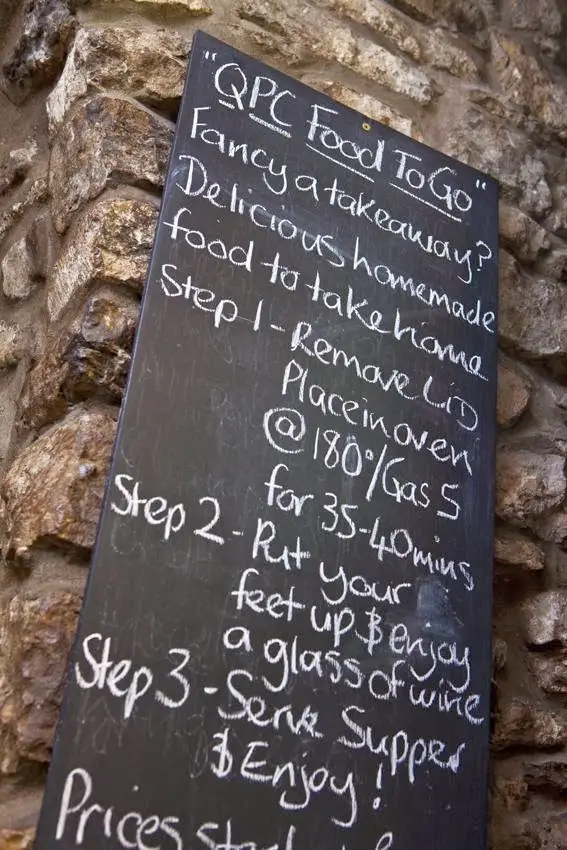 "QPC Food To Go"
Fancy a takeaway?
Delicious homemade
food to take home
Step 1 - Remove LiD
Place in oven
@ 180°/Gas 5
for 35-40mins
Step 2 - Put your
feet up & enjoy
a glass of wine
Step 3 - Serve Supper
& Enjoy!
Prices